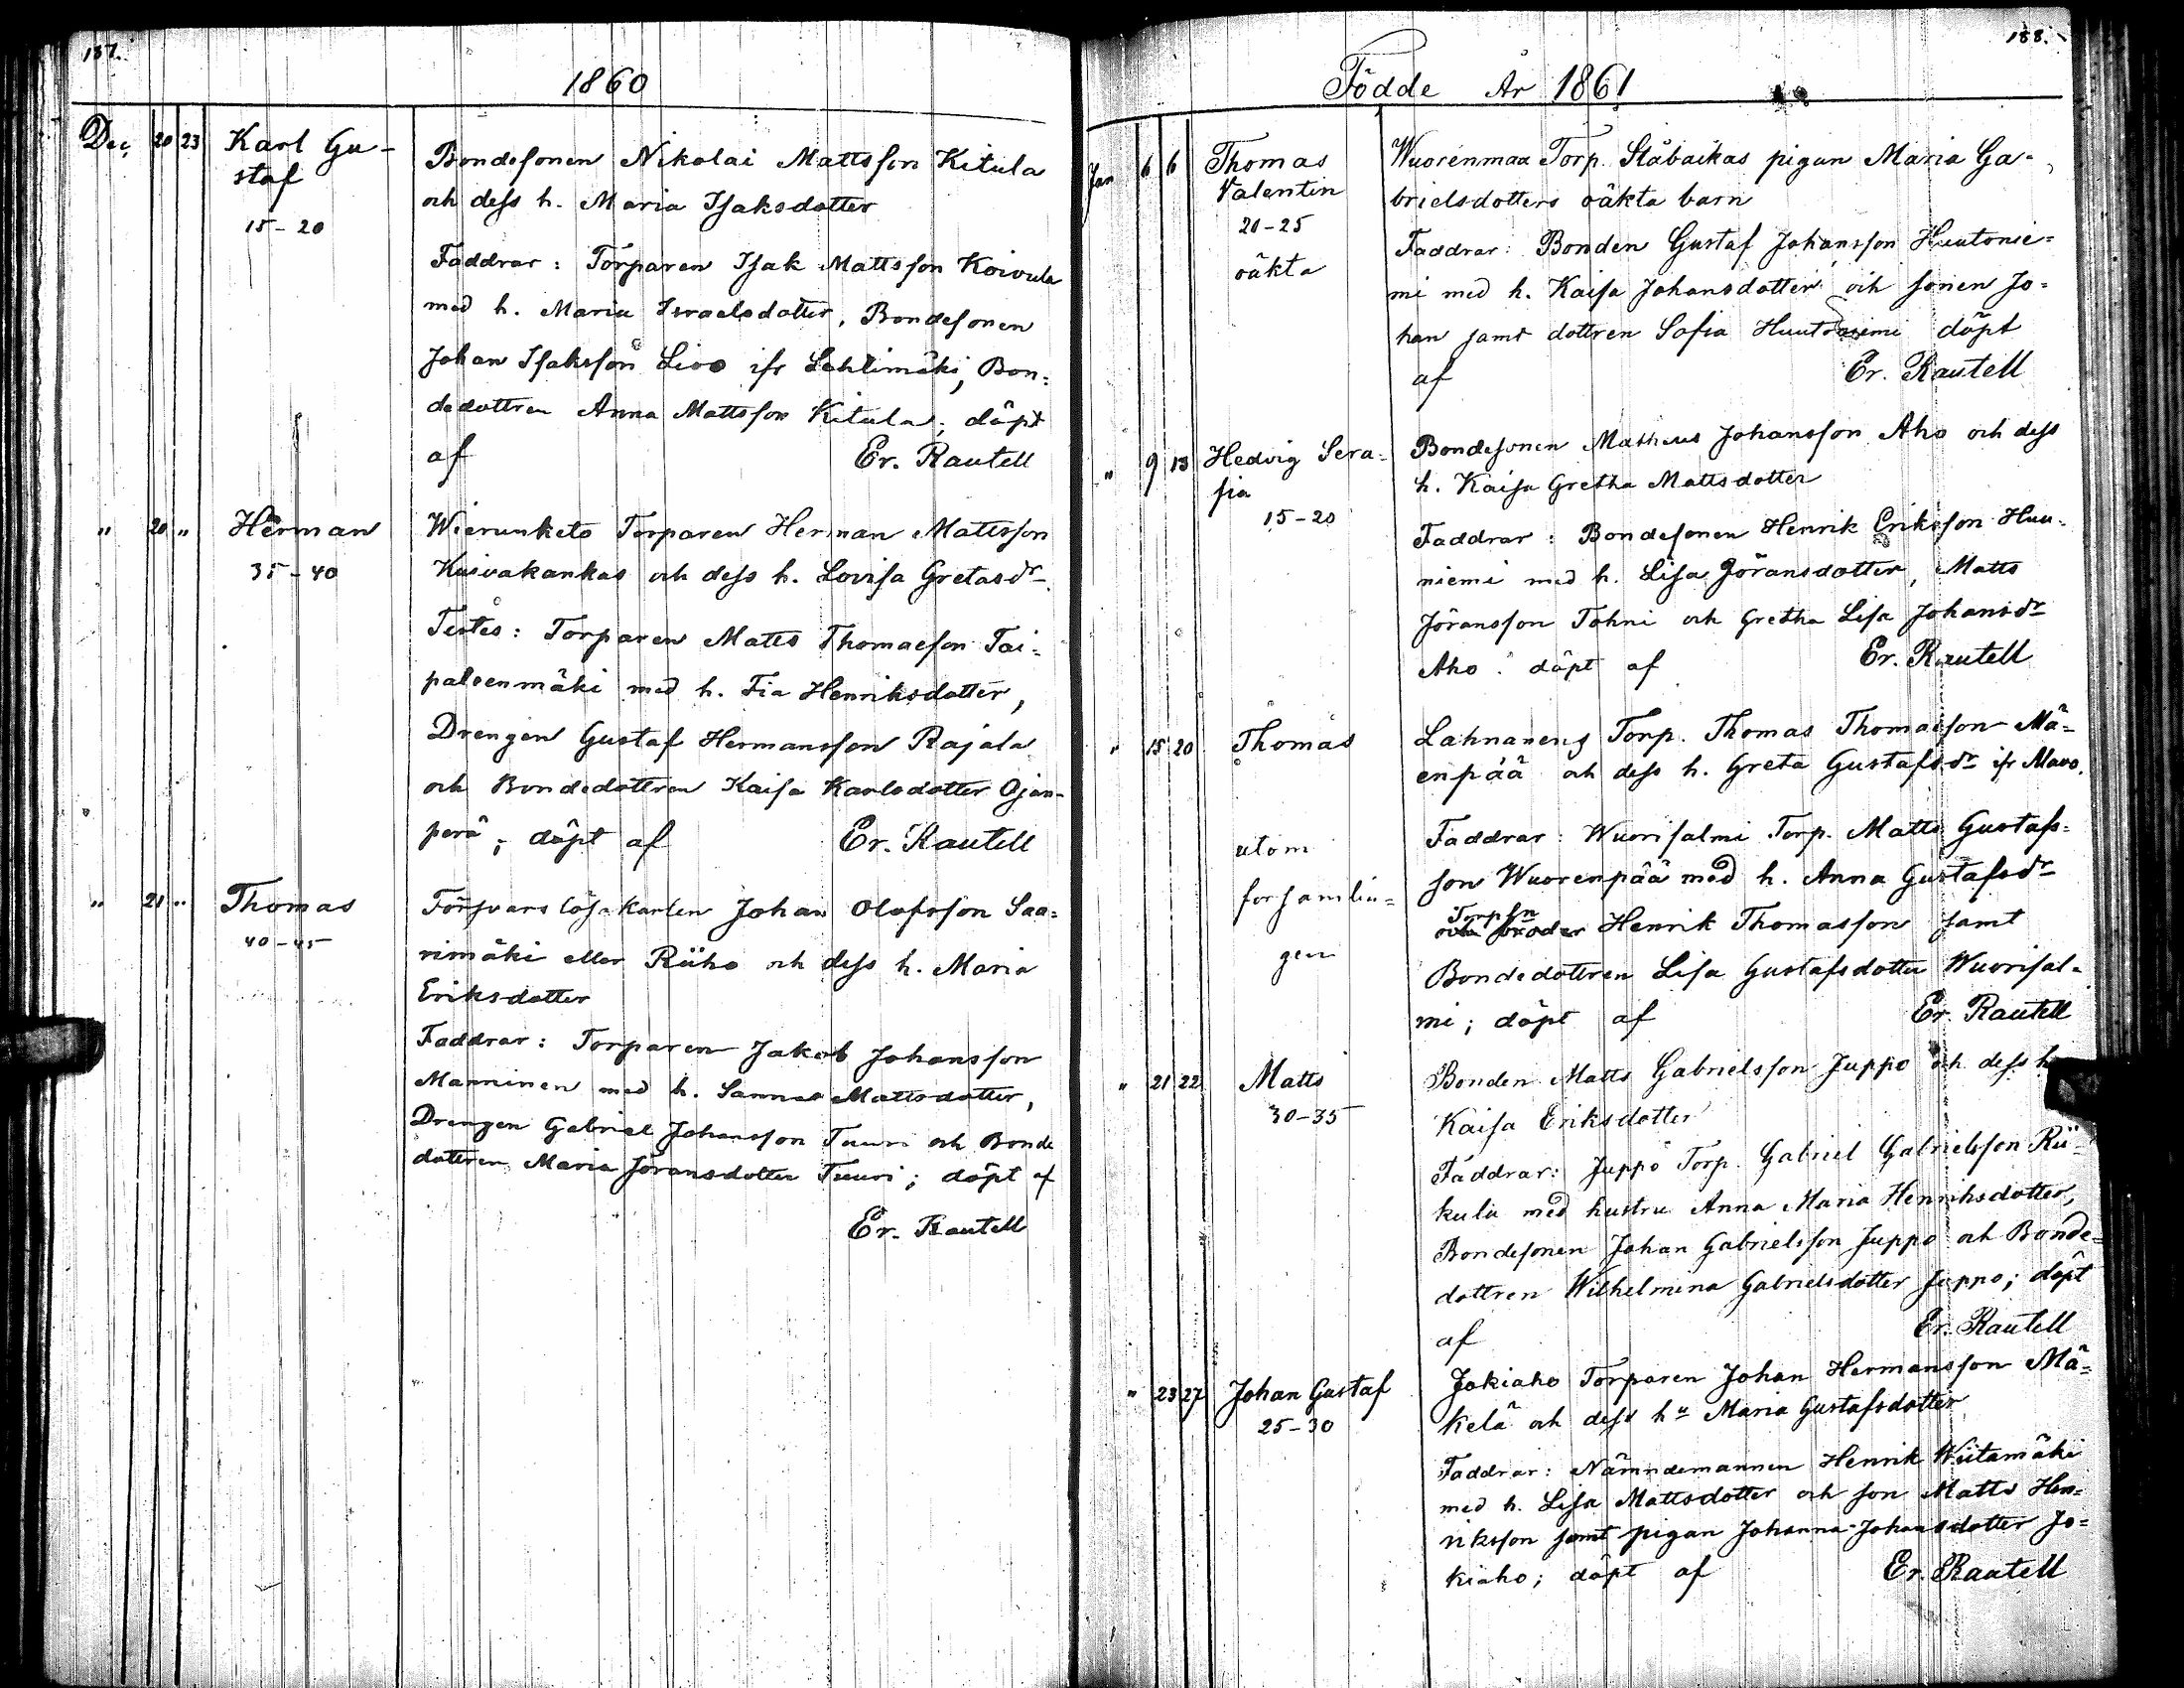 187.
1860
Dec. 20 23 Karl Gu-
staf
15-20
Bondesonen Nikolai Mattsson Kitula
och dess h. Maria Isaksdotter
Faddrar: Torparen Isak Mattsson Koivula
med h. Maria Israelsdotter, Bondesonen
Johan Isaksson Livo ifr Lehtimäki, Bon=
dedottren Anna Mattsson Kitula; döpt
af Er. Rautell
" 20 " Herman
35-40
Wierunketo Torparen Herman Mattsson
Kuivakankas och dess h. Lovisa Gretasdr.
Testes: Torparen Matts Thomasson Tai=
paleenmäki med h. Fia Henriksdotter,
Drengen Gustaf Hermansson Rajala
och Bondedottren Kaisa Karlsdotter Ojan-
perä; döpt af Er. Rautell
" 21 " Thomas
40-45
Försvarslöskarlen Johan Olofsson Saa=
rimäki eller Riiho och dess h. Maria
Eriksdotter
Faddrar: Torparen Jakob Johansson
Manninen med h. Sanna Mattsdotter,
Drengen Gabriel Johansson Tuuri och Bonde
dottren Maria Göransdotter Tuuri; döpt af
Er. Rautell
188.
Födde År 1861
Jan 6 6 Thomas
Valentin
20-25
oäkta
Wuorenmaa Torp. pigan Maria Ga-
brielsdotters oäkta barn
Faddrar: Bonden Gustaf Johansson Huutonie=
mi med h. Kaisa Johansdotter och sonen Jo=
han samt dottren Sofia Huutoniemi döpt
af Er. Rautell
" 9 13 Hedvig Sera=
fia
15-20
Bondesonen Matheus Johansson Aho och dess
h. Kaisa Gretha Mattsdotter
Faddrar: Bondesonen Henrik Eriksson Huu-
niemi med h. Lisa Göransdotter, Matts
Göransson Tohni och Gretha Lisa Johansdr
Aho: döpt af Er. Rautell
" 15 20 Thomas
utom
församlin=
gen
Lahnanens Torp. Thomas Thomasson Mä=
enpää och dess h. Greta Gustafsdr ifr Mavo.
Faddrar: Wuorisalmi Torp. Matts Gustafs=
son Wuorenpää med h. Anna Gustafsdr
Torpsn
och broder Henrik Thomasson samt
Bondedottren Lisa Gustafsdotter Wuorisal=
mi; döpt af Er. Rautell
" 21 22 Matts
30-35
Bonden Matts Gabrielsson Juppo och dess h
Kaisa Eriksdotter
Faddrar: Juppo Torp. Gabriel Gabrielsson Rii=
kula med hustru Anna Maria Henriksdotter,
Bondesonen Johan Gabrielsson Juppo och Bonde=
dottren Wilhelmina Gabrielsdotter Juppo; döpt
af Er. Rautell
" 23 27 Johan Gustaf
25-30
Jokiaho Torparen Johan Hermansson Mä=
kelä och dess hu Maria Gustafsdotter
Faddrar: Nämndemannen Henrik Wiitamäki
med h. Lisa Mattsdotter och son Matts Hen=
riksson samt pigan Johanna Johansdotter Jo=
kiaho; döpt af Er. Rautell